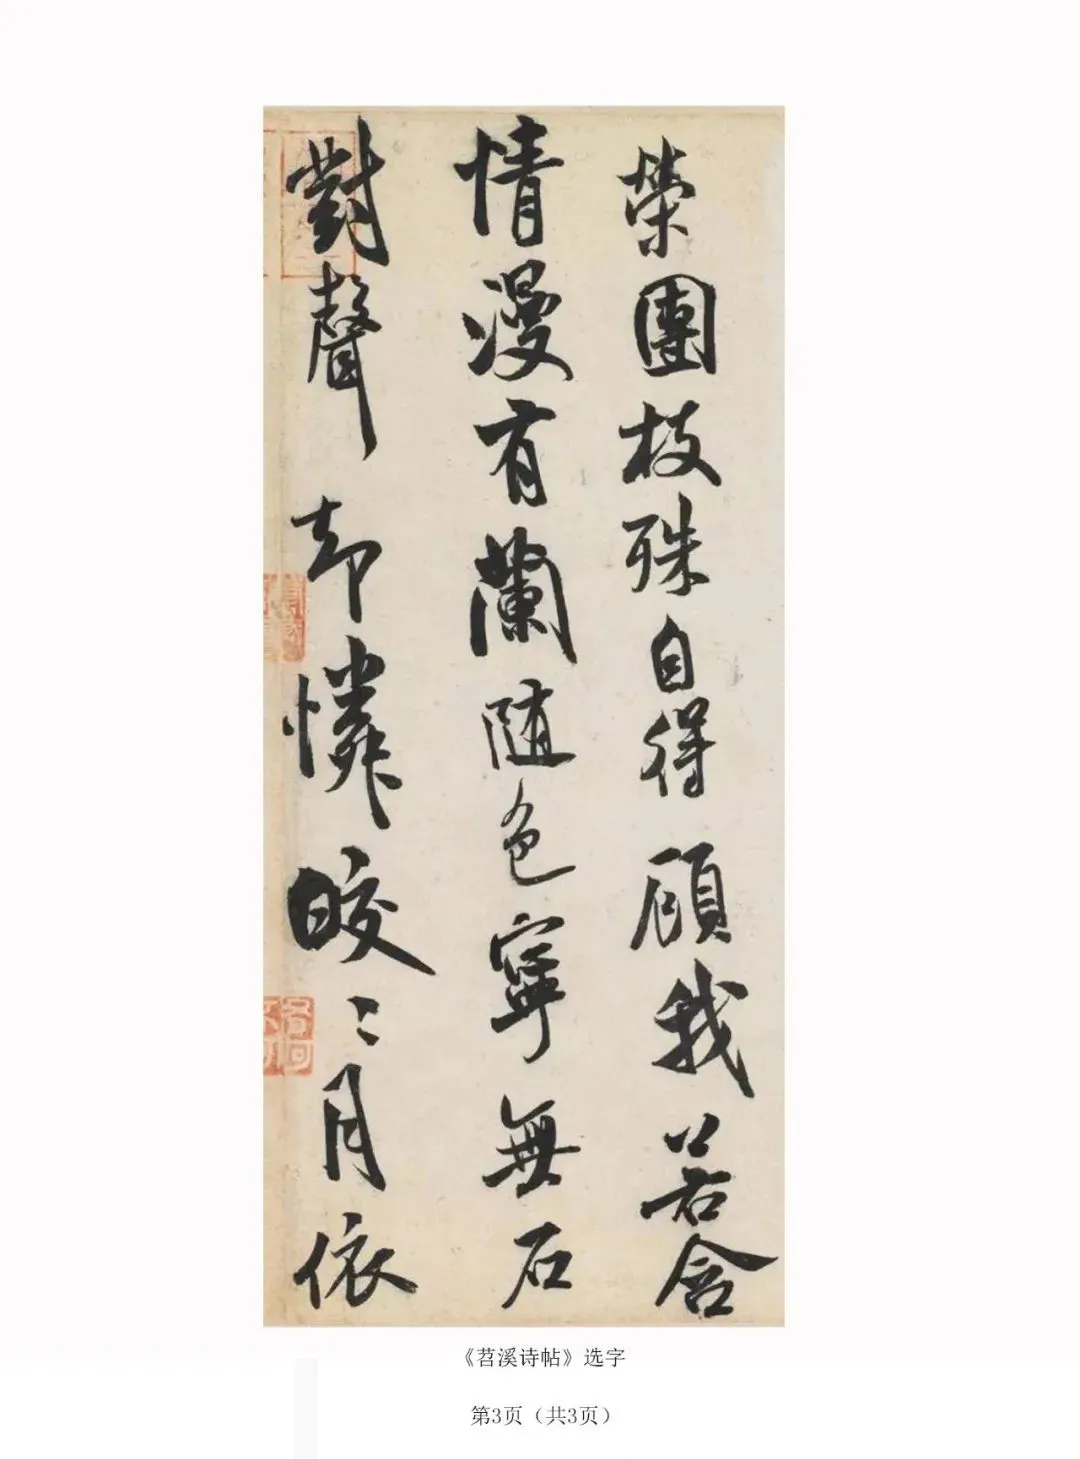 荣團枝殊自得顧我若含
情漫有蘭随色寧無石
對聲却憐皎〻月依
《苕溪诗帖》选字
第3页（共3页）